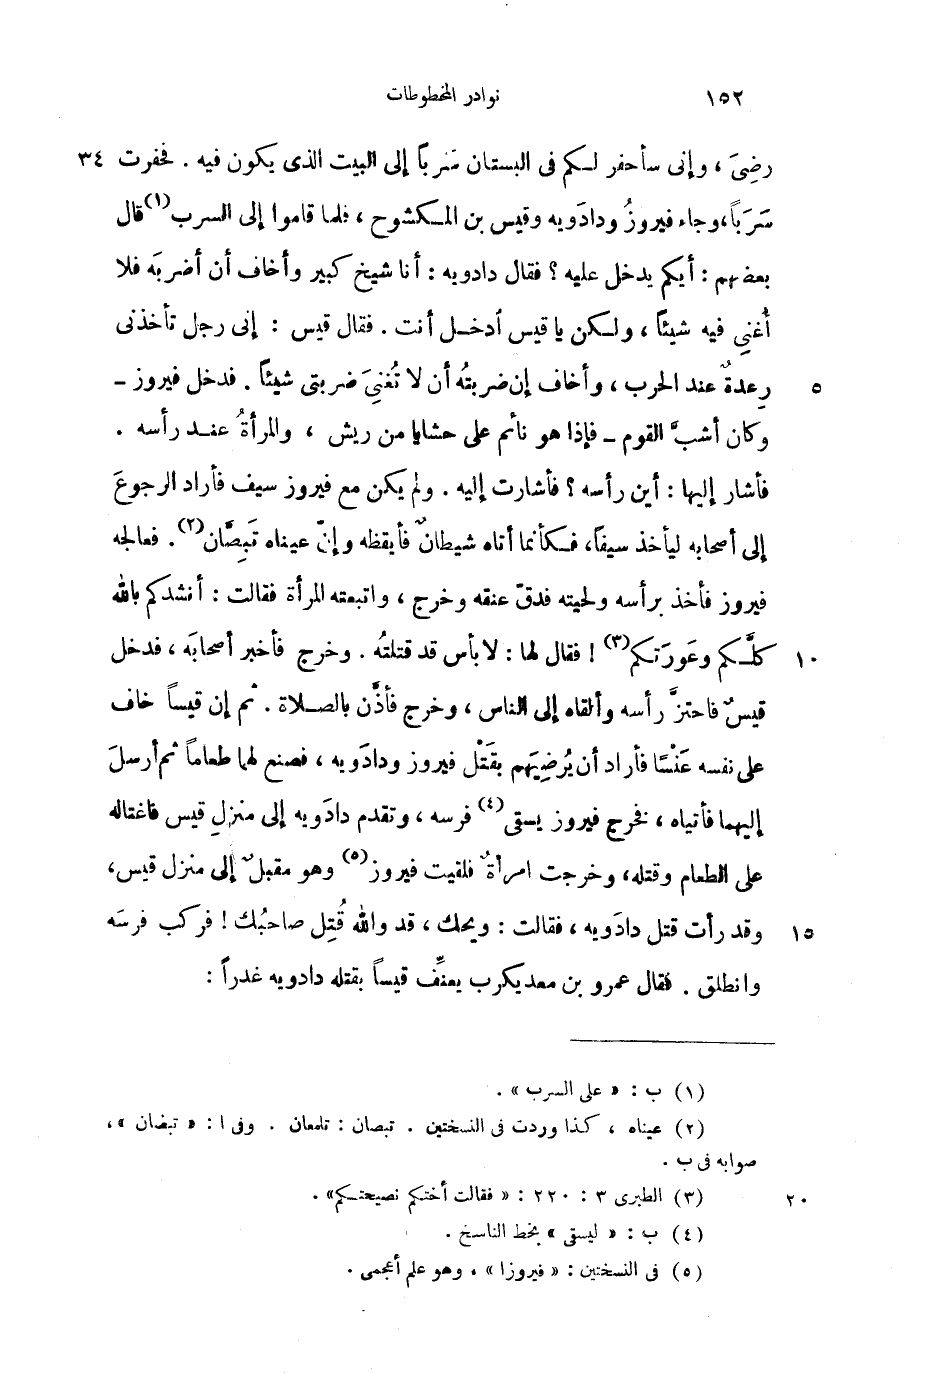 ١٥٢ نوادر المخطوطات
رضِىَ ، وإنى سأحفر لكم فى البستان سَرَباً إلى البيت الذى يكون فيه . فحفرت ٣٤
سَرَباً، وجاء فيروزُ ودادَويه وقيس بن المكشوح ، فلما قاموا إلى السرب(١) قال
بعضهم : أيكم يدخل عليه ؟ فقال دادويه : أنا شيخ كبير وأخاف أن أضربَه فلا
أُغنِي فيه شيئاً ، ولكن يا قيس أدخل أنت . فقال قيس : إنى رجل تأخذنى
رِعدةٌ عند الحرب ، وأخاف إن ضربتُه أن لا تُغنِىَ ضربتى شيئاً . فدخل فيروز – ٥
وكان أشبَّ القوم – فإذا هو نائم على حشايا من ريش ، والمرأةُ عند رأسه .
فأشار إليها : أين رأسه ؟ فأشارت إليه . ولم يكن مع فيروز سيف فأراد الرجوعَ
إلى أصحابه ليأخذ سيفاً، فكأنما أتاه شيطانٌ فأيقظه وإنّ عيناه تَبِصَّان(٢) . فعالجه
فيروز فأخذ برأسه ولحيته فدقّ عنقه وخرج ، واتبعته المرأة فقالت : أنشدكم بالله
كلَّكم وعَورَتكم(٣) ! فقال لها : لا بأس قد قتلتُه . وخرج فأخبر أصحابَه ، فدخل ١٠
قيسٌ فاحتزَّ رأسه وألقاه إلى الناس ، وخرج فأذَّن بالصلاة . ثم إن قيساً خاف
على نفسه عَنْسًا فأراد أن يُرضِيَهم بقَتْل فيروز ودادَويه ، فصنع لهما طعاماً ثم أرسلَ
إليهما فأتياه ، فخرج فيروز يسقى(٤) فرسه ، وتقدم دادَويه إلى منزلِ قيس فاغتاله
على الطعام وقتله، وخرجت امرأةٌ فلقيت فيروز(٥) وهو مقبلٌ إلى منزل قيس،
وقد رأت قتل دادَويه ، فقالت : ويحك ، قد والله قُتِل صاحبُك ! فركب فرسَه ١٥
وانطلق . فقال عمرو بن معديكرب يعنِّف قيساً بقتله دادويه غدراً :
(١) ب : « على السرب » .
(٢) عيناه ، كذا وردت فى النسختين . تبصان : تلمعان . وفى ا : « تبضان » ،
صوابه فى ب .
(٣) الطبرى ٣ : ٢٢٠ : « فقالت أختكم نصيحتكم» . ٢٠
(٤) ب : « ليسقى » بخط الناسخ .
(٥) فى النسختين : « فيروزا » ، وهو علم أعجمى .